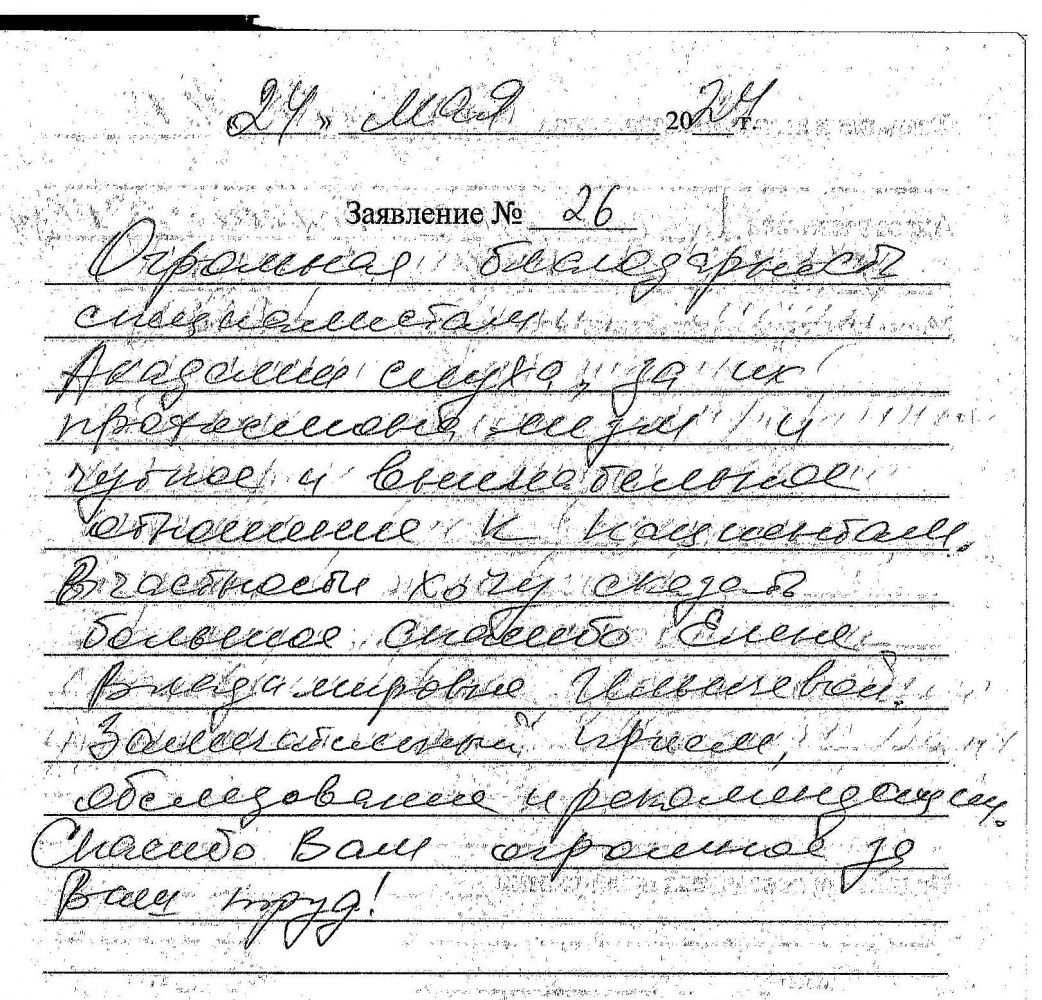 «24» мая 2024 г.
Заявление № 26
Огромная благодарность
специалистам
Академии слуха, за их
профессионализм и
чуткое и внимательное
отношение к пациентам.
В частности хочу сказать
большое спасибо Елене
Владимировне
Замечательный прием,
обследование и рекомендации.
Спасибо Вам огромное за
Ваш труд!